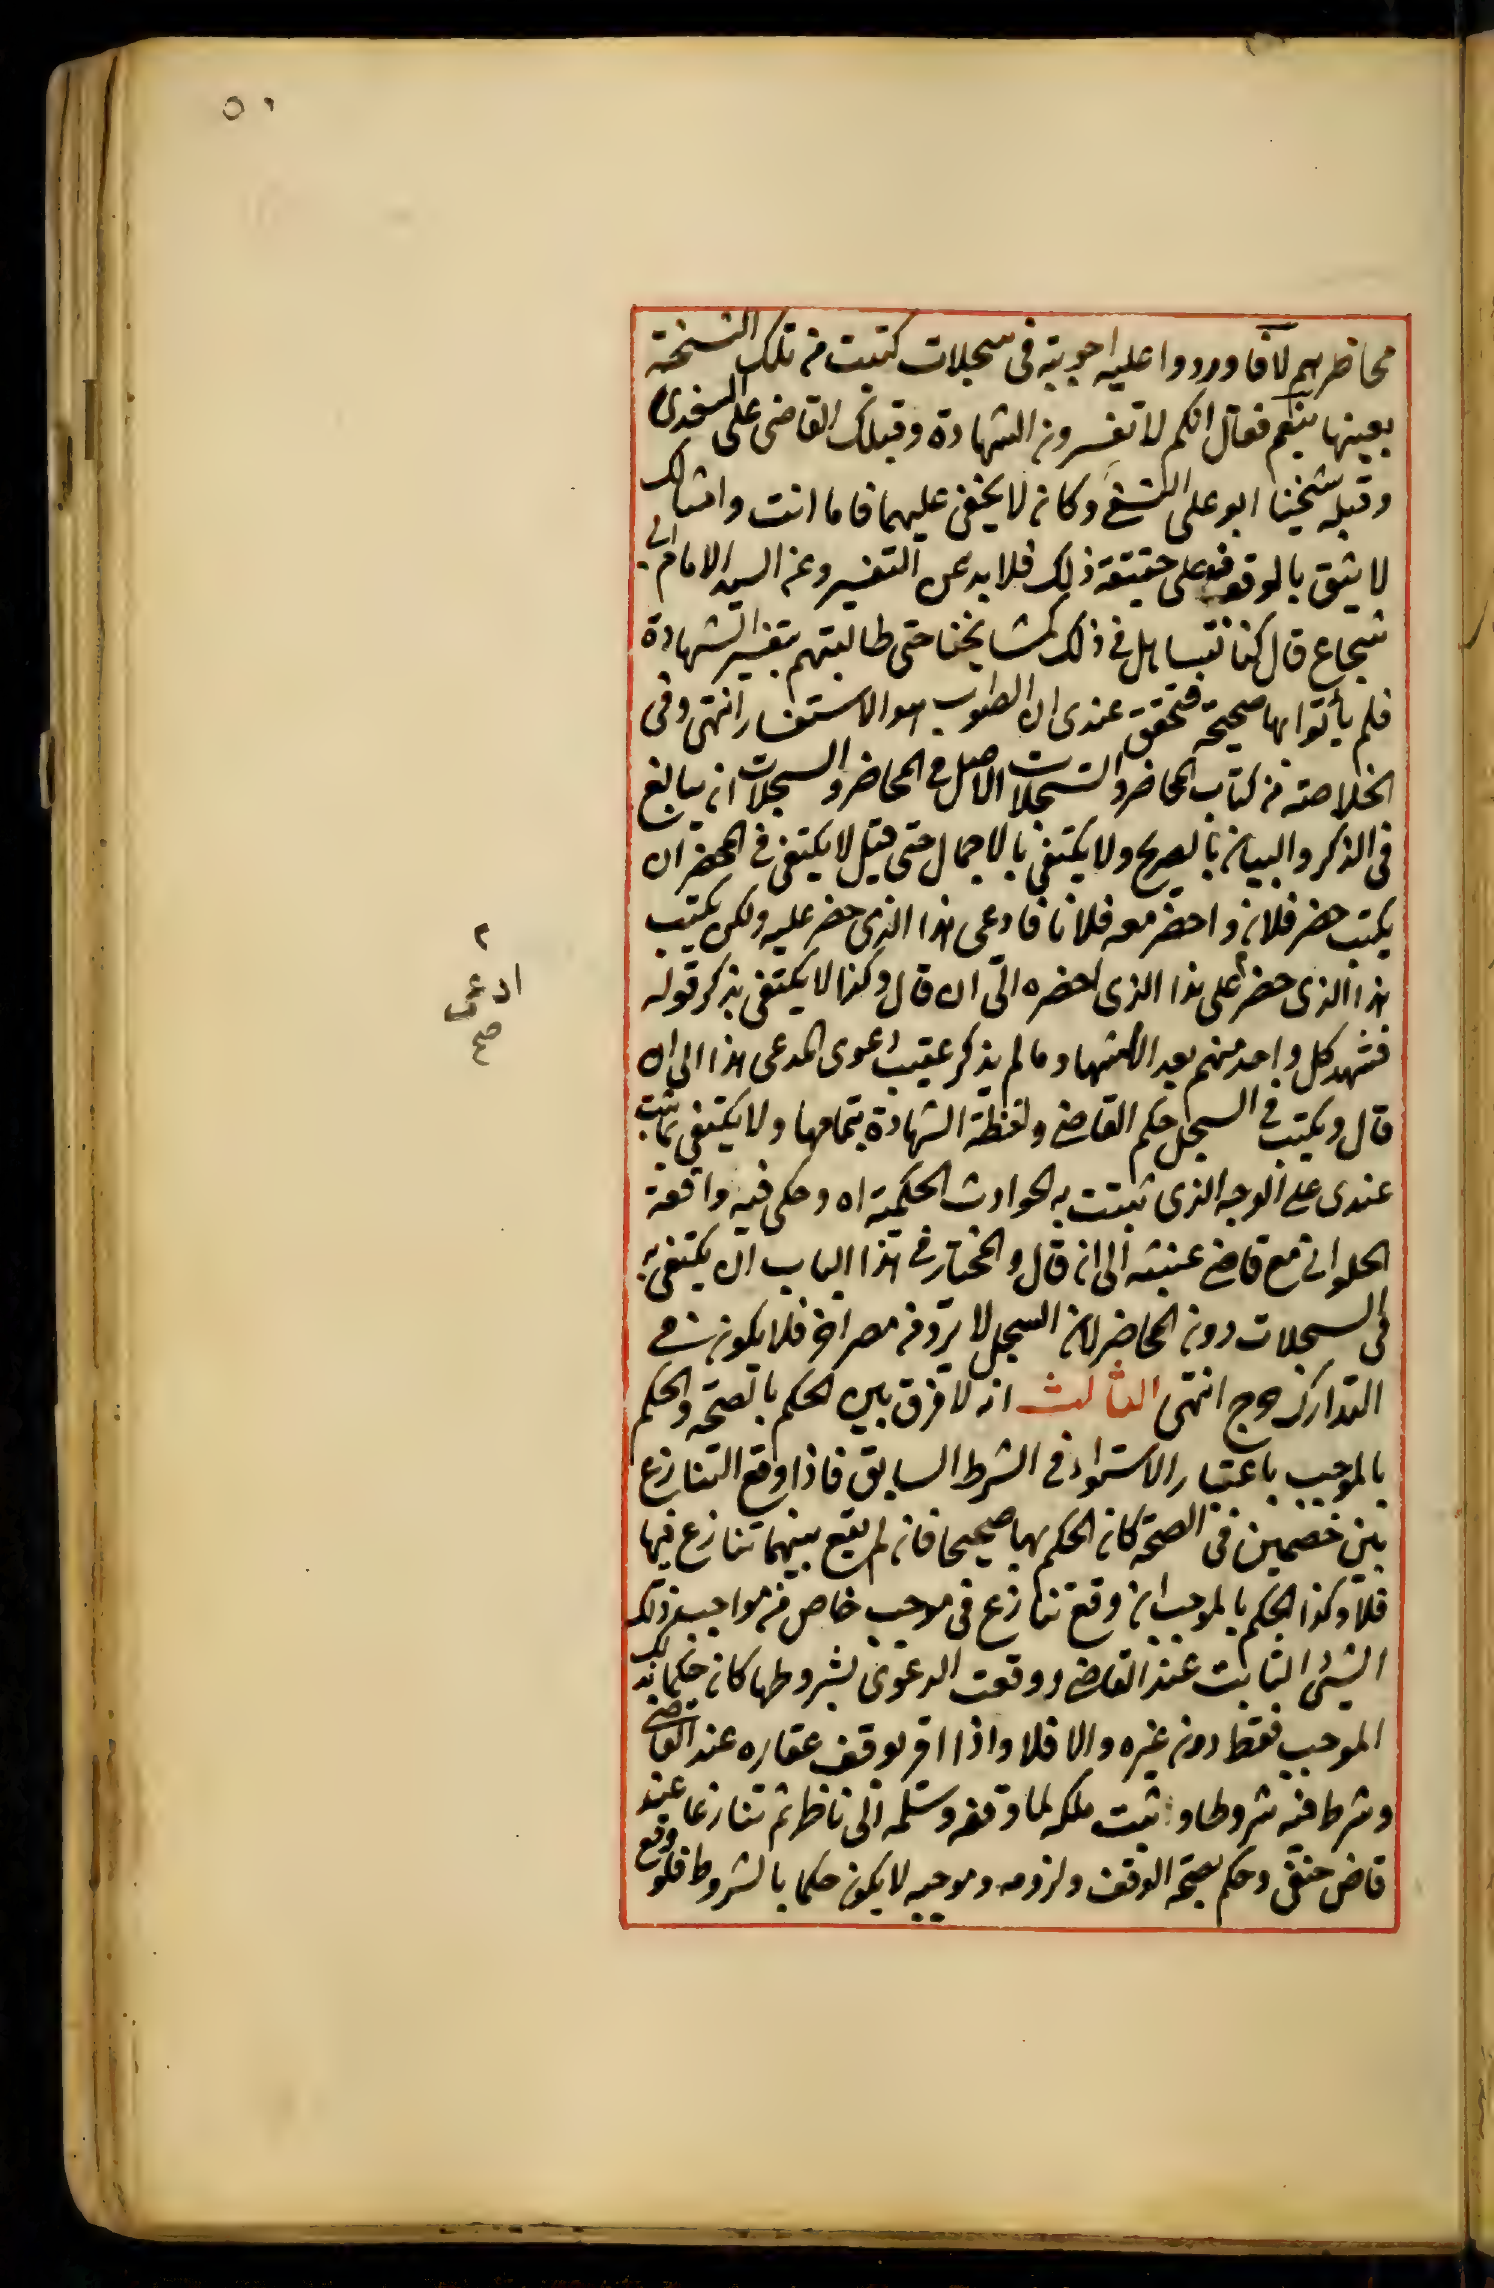 ٥٠
محاضرهم لا فاوردوا عليه اجوبة فى سجلات كتبت من تلك النسخة
بعينها بنعم فقال انكم لا تفسرون الشهادة وقبلك القاضى على السغدى
وقبله شيخنا ابو على النسفى وكان لا يخفى عليهما فاما انت وامثالك
لا يثق بالوقوف على حقيقة ذلك فلا بد من التفسير وعن السيد الامام ابى
شجاع قال كنا نتساهل فى ذلك كمشايخنا حتى طالبتهم بتفسير الشهادة
فلم يأتوا بها صحيحة فتحقق عندى ان الصواب هو الاستفسار انتهى وفى
الخلاصة من كتاب المحاضر والسجلات الاصل فى المحاضر والسجلات ان يبالغ
فى الذكر والبيان بالصريح ولا يكتفى بالاجمال حتى قيل لا يكتفى فى المحضر ان
يكتب حضر فلان واحضر معه فلانا فادعى هذا الذى حضر عليه ولكن يكتب
هذا الذى حضر على هذا الذى احضره الى ان قال وكذا لا يكتفى بذكر قوله
ادعى
صح
فشهد كل واحد منهم بعد الاستشهاد ما لم يذكر عقيب دعوى المدعى هذا الى ان
قال ويكتب فى السجل حكم القاضى ولفظة الشهادة بتمامها ولا يكتفى بما ثبت
عندى على الوجه الذى ثبتت به الحوادث الحكمية اه وحكى فيه واقعة
الحلوانى مع قاضى عنبسه الى ان قال والمختار فى هذا الباب ان يكتفى به
فى السجلات دون المحاضر لان السجل لا يرد من مصر اخر فلا يكون فى
التدارك حرج انتهى الثالث انه لا فرق بين الحكم بالصحة والحكم
بالموجب باعتبار الاستواء فى الشرط السابق فاذا وقع التنازع
بين خصمين فى الصحة كان الحكم بها صحيحا فان لم يقع بينهما تنازع فيها
فلا وكذا الحكم بالموجب ان وقع تنازع فى موجب خاص من مواجب ذلك
الشىء الثابت عند القاضى ووقعت الدعوى بشروطها كان حكما بذلك
الموجب فقط دون غيره والا فلا واذا اقر بوقف عقاره عند القاضى
وشرط فيه شروطا و ثبت ملكه لما وقفه وسلمه الى ناظر ثم تنازعا عند
قاض حنفى وحكم بصحة الوقف ولزومه وموجبه لا يكون حكما بالشروط فلو وقع